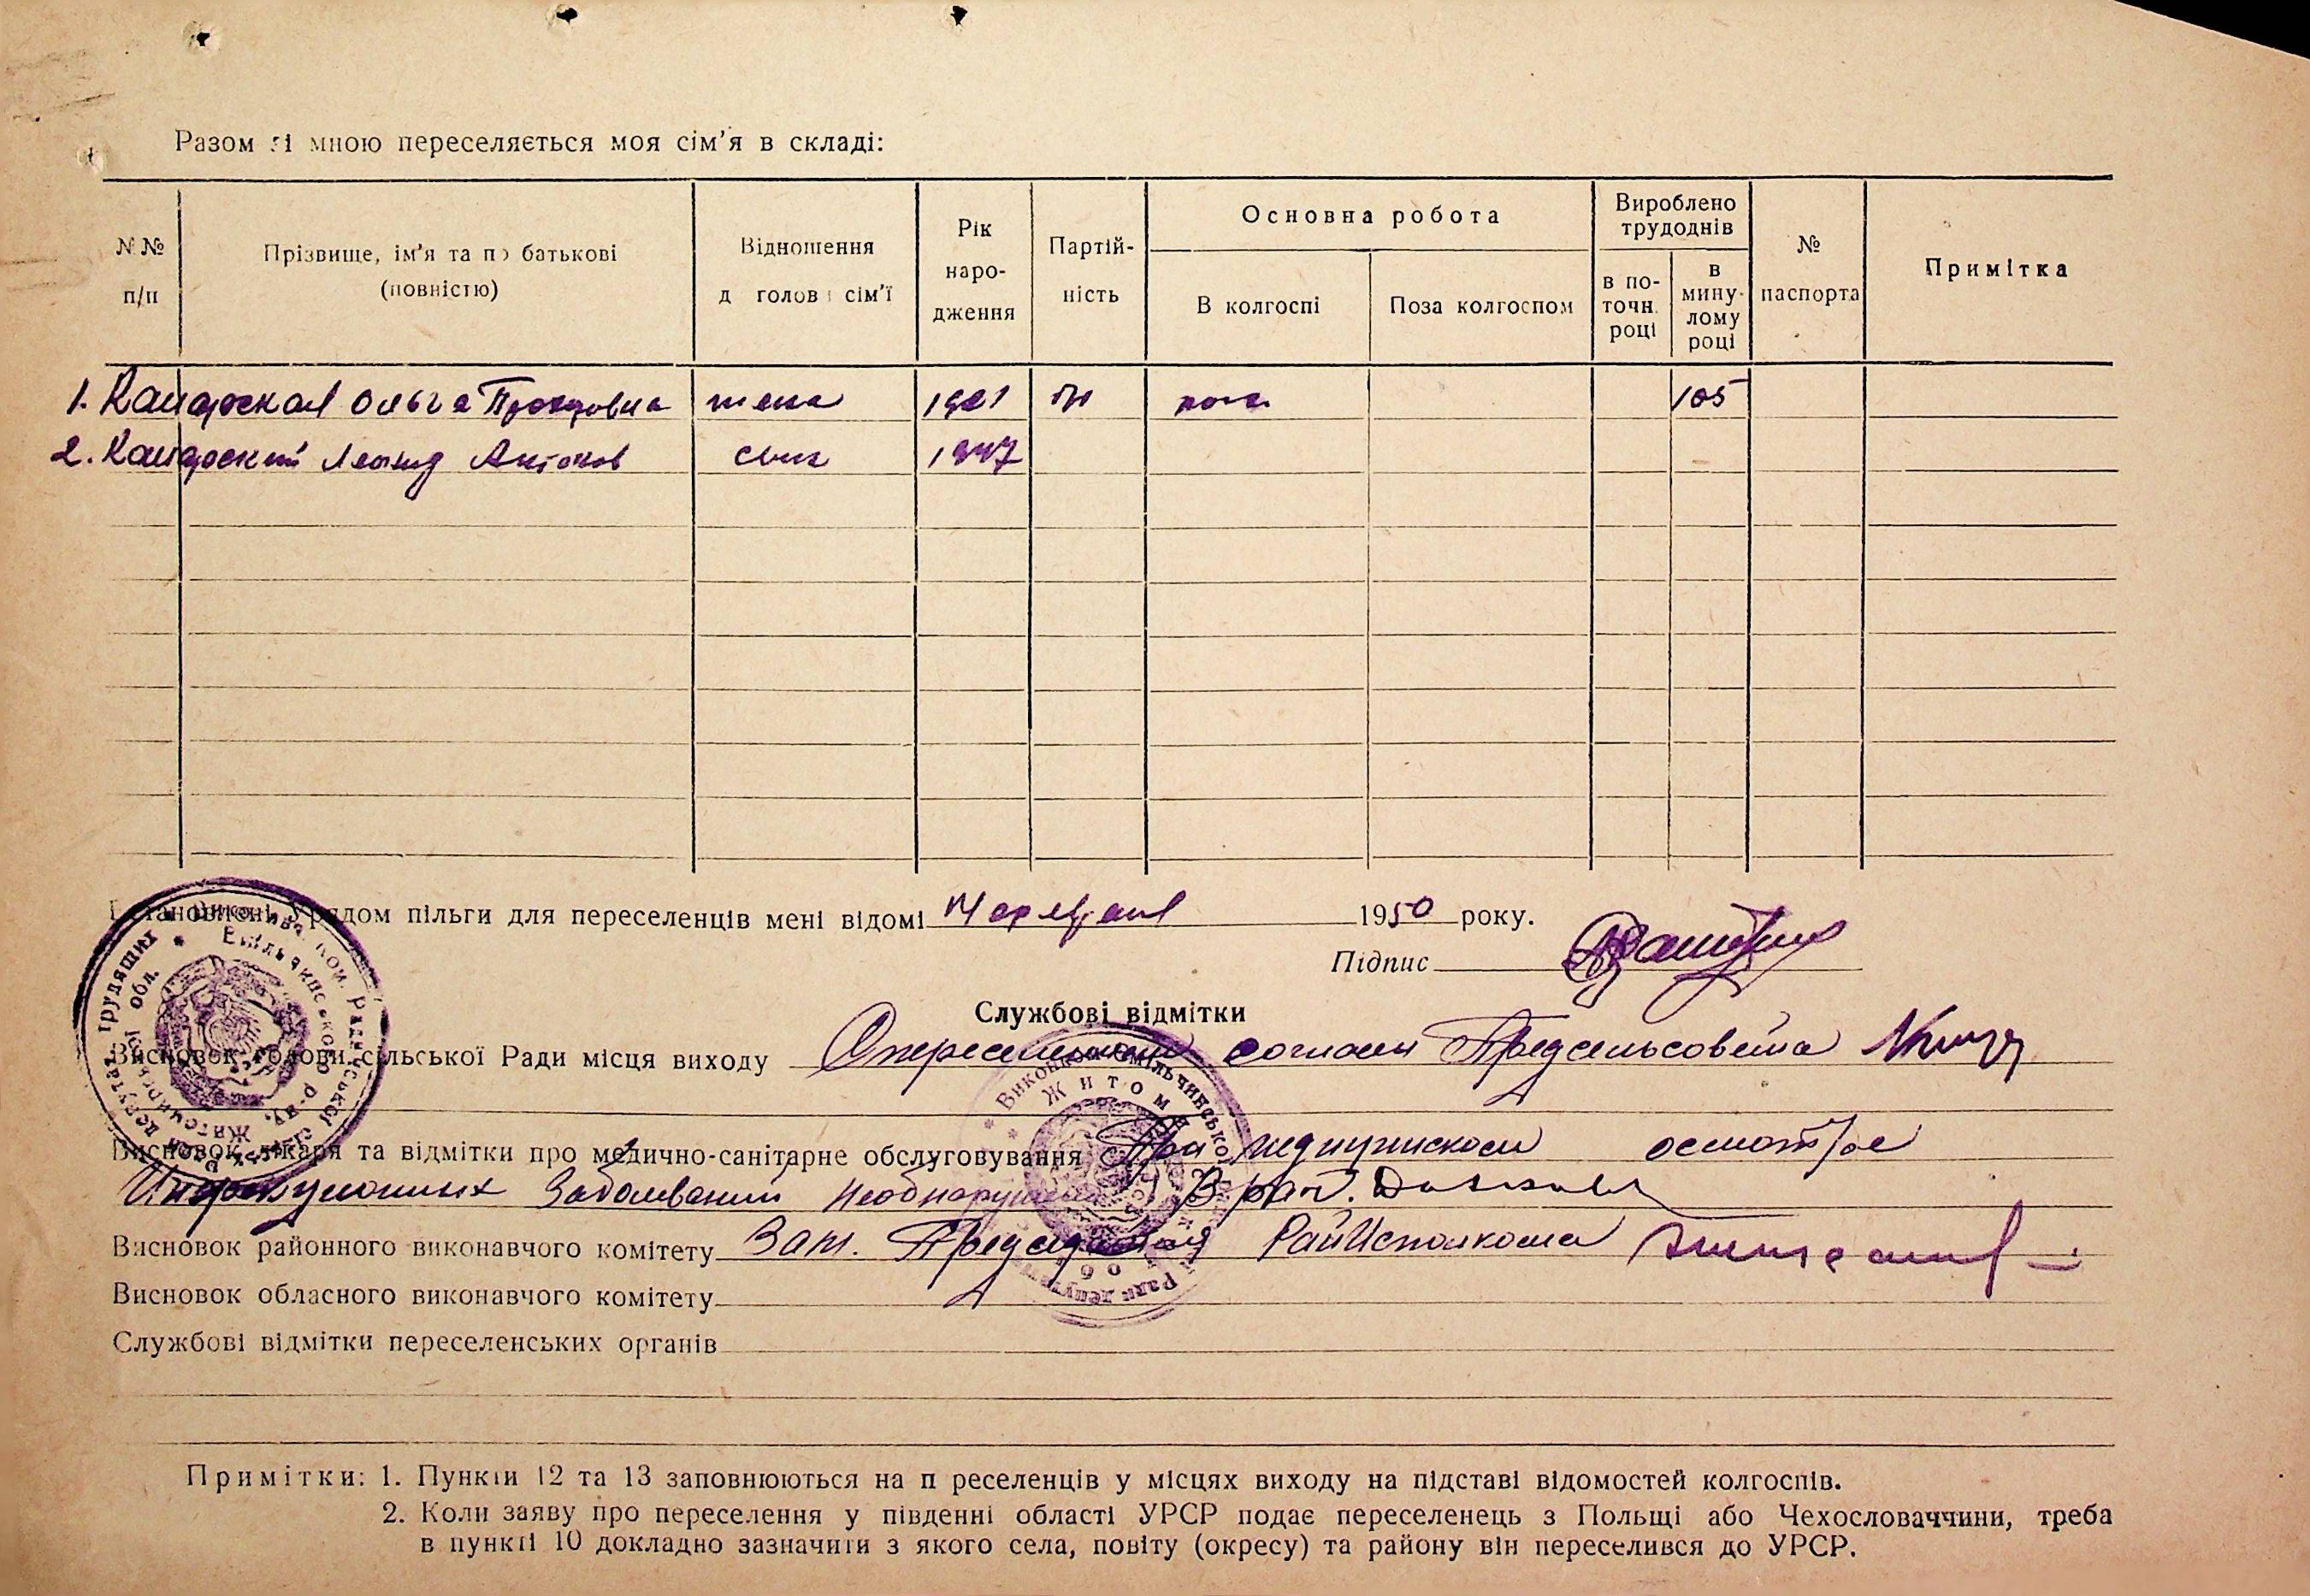 Разом зі мною переселяється моя сім'я в складі:
N№ п/п
Прізвище, ім'я та по батькові (повністю)
Відношення д голов і сім'ї
Рік наро-дження
Партій-ність
Основна робота
В колгоспі
Поза колгоспом
Вироблено трудоднів
в по-точн. році
в мину-лому році
№ паспорта
Примітка
1. Ольга жена 1921 105
2. Леонид Антонов сын 1947
Встановлені Урядом пільги для переселенців мені відомі 1950 року.
Підпис
Службові відмітки
Висновок голови сільської Ради місця виходу О переселении согласен Предсельсовета
Висновок лікаря та відмітки про медично-санітарне обслуговування При медицинском осмотре
Инфекционных Заболеваний Необнаружено Врач.
Висновок районного виконавчого комітету Зам. Председателя РайИсполкома
Висновок обласного виконавчого комітету
Службові відмітки переселенських органів
Примітки: 1. Пункти 12 та 13 заповнюються на п реселенців у місцях виходу на підставі відомостей колгоспів.
2. Коли заяву про переселення у південні області УРСР подає переселенець з Польщі або Чехословаччини, треба
в пункті 10 докладно зазначити з якого села, повіту (окресу) та району він переселився до УРСР.